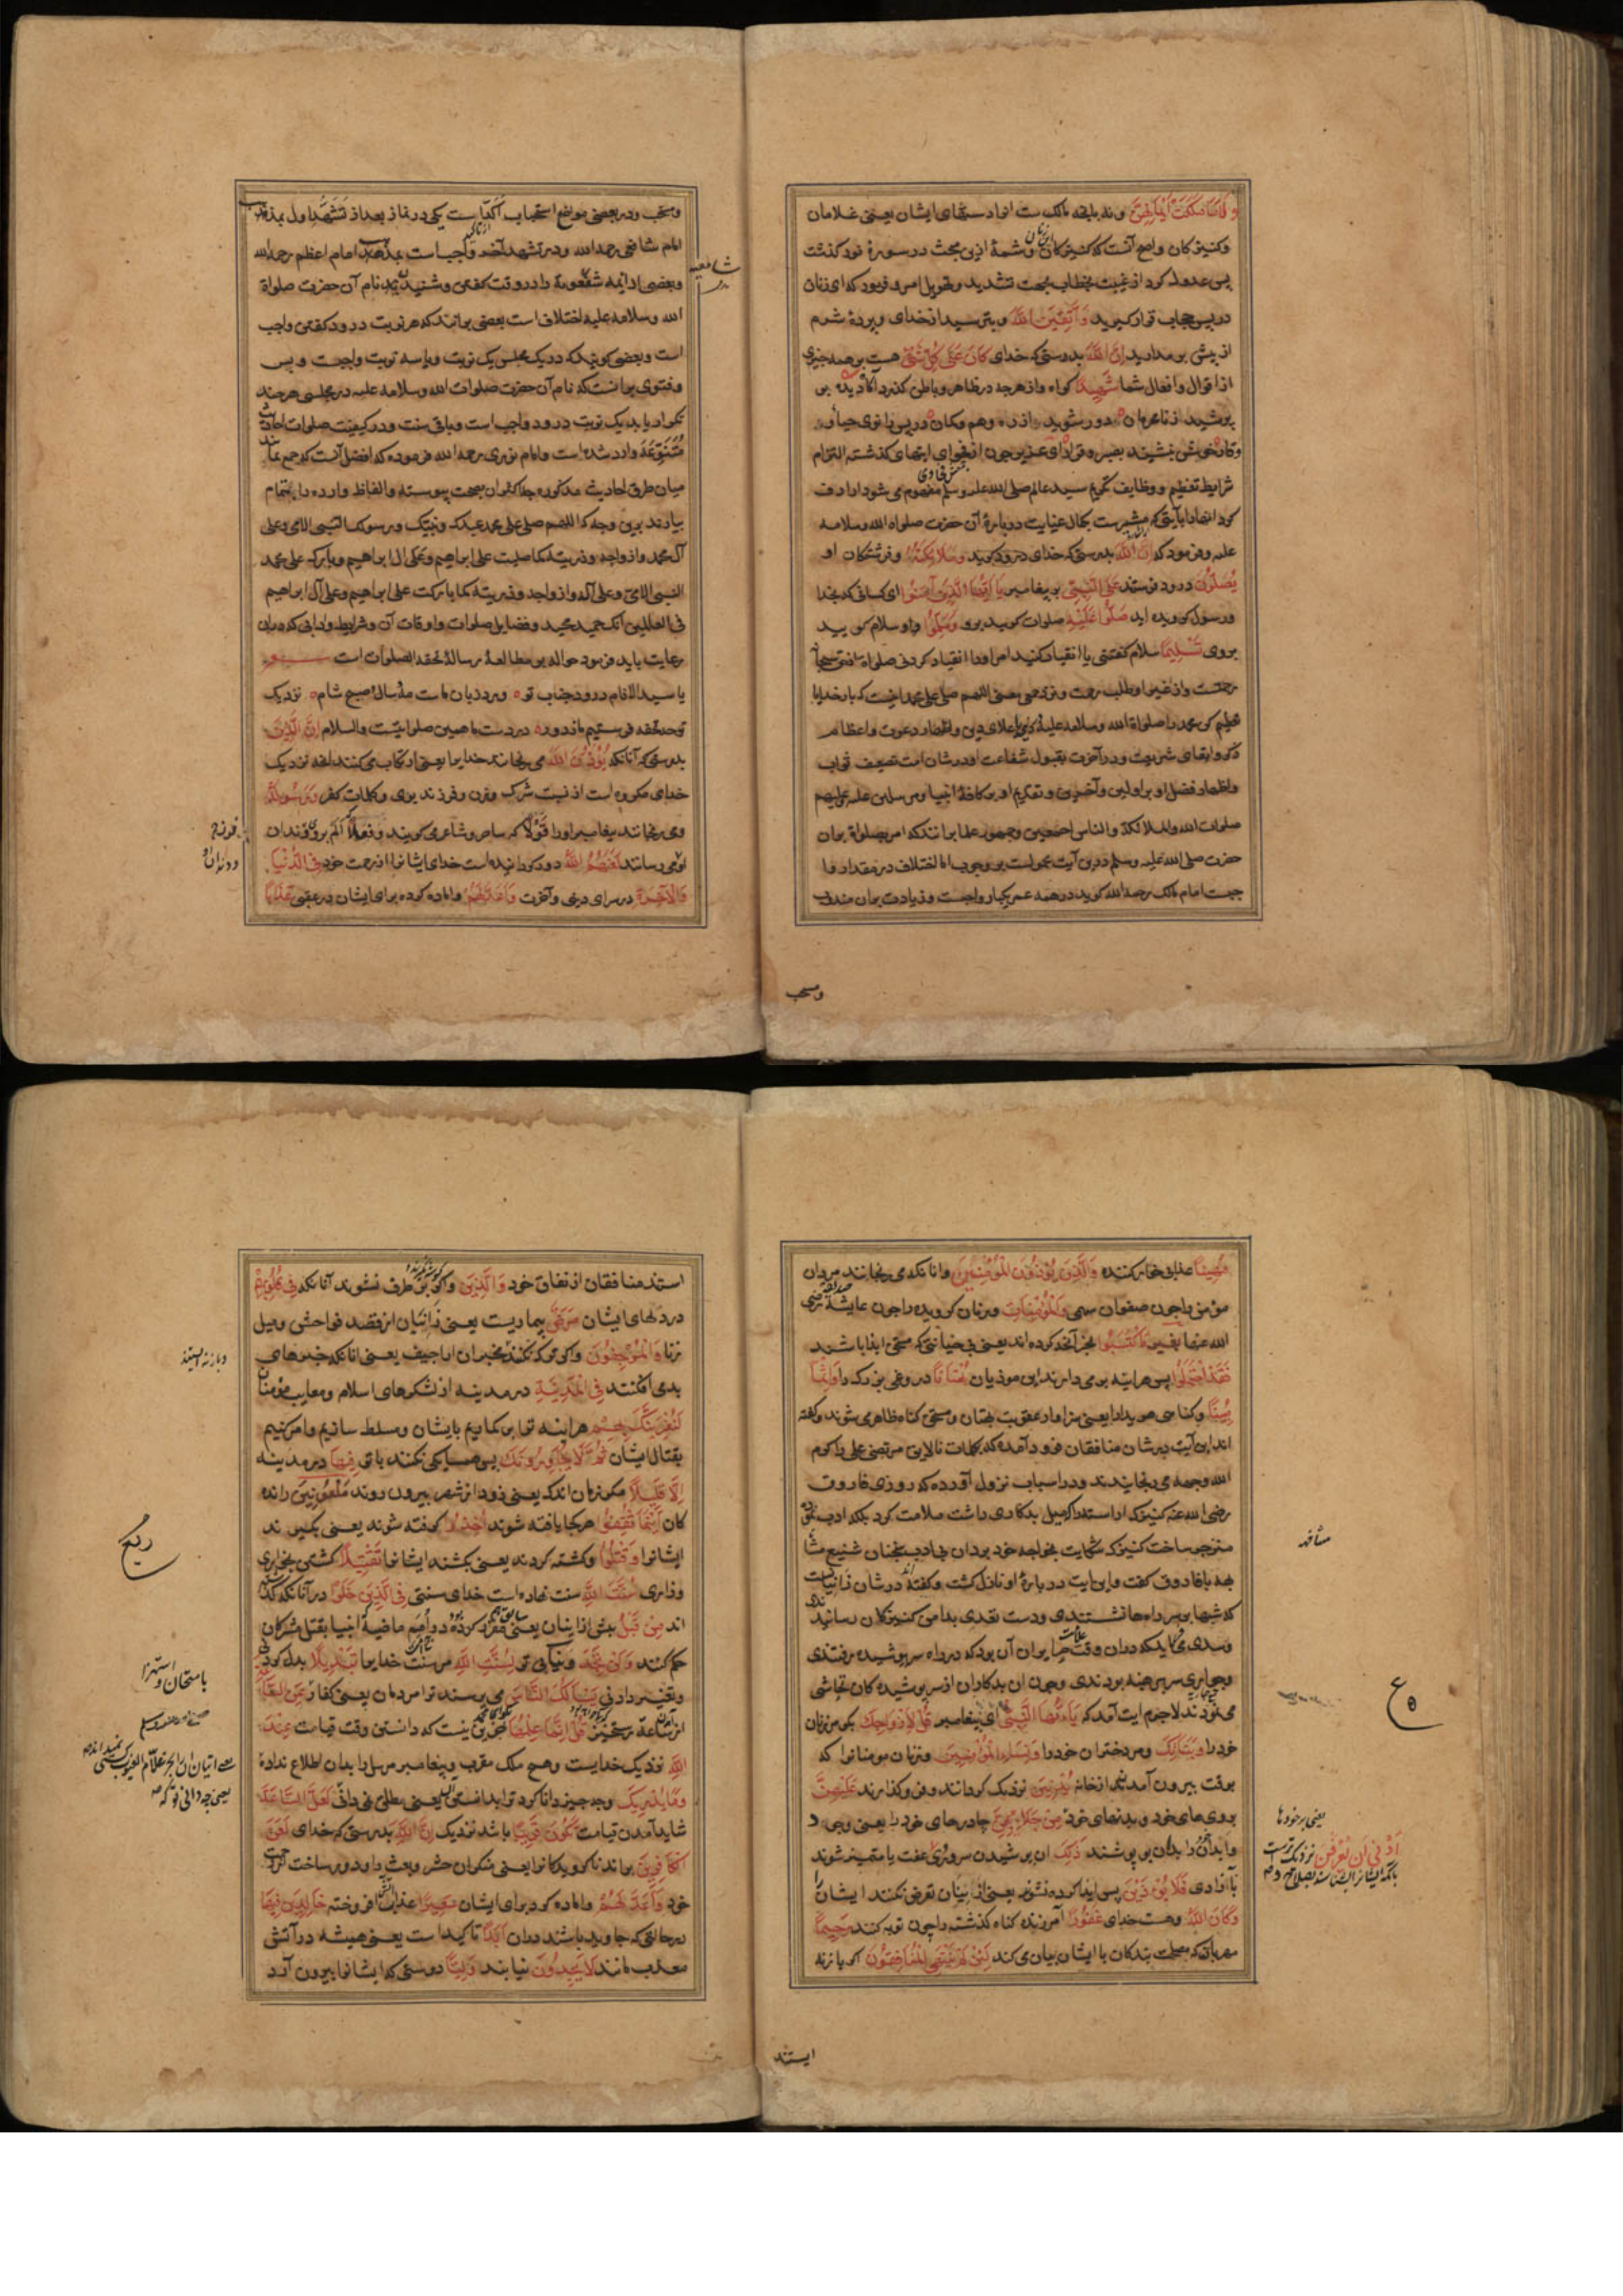 وَلَا مَا مَلَكَتْ أَيْمَانُهُنَّ ونه بآنچه مالک ست انرا دستهای ایشان یعنی غلامان
وکنیزکان واصح آنست که کنیزکان وشمهٔ ازین بحث در سورهٔ نور گذشت
پس عدول کرد از غیبت بخطاب بجهت تشدید وتحویل امر وفرمود که ای زنان
در پس حجاب قرار گیرید وَاتَّقِينَ اللَّهَ وبترسید از خدای وپردهٔ شرم
از پیش بر مدارید إِنَّ اللَّهَ بدرستی که خدای كَانَ عَلَى كُلِّ شَيْءٍ هست بر همه چیزی
از اقوال وافعال شما شَهِيدًا گواه واز هرچه در ظاهر وباطن گذرد آگاه دیده بر
پوشید از نامحرمان دور شوید از ره وهم وگمان در پس زانوی حیا و
وقار خویش بنشینید بصبر وقرار ای عزیز چون از فحوای ایتهای گذشته التزام
شرایط تعظیم ووظایف تکریم سید عالم صلی الله علیه وسلم مفهوم می شود ارداف
کرد انها را بآیتی که مشعرست بکمال عنایت در بارهٔ آن حضرت صلواة الله وسلامه
علیه وفرمود که إِنَّ اللَّهَ بدرستی که خدای درود گوید وَمَلَائِكَتَهُ وفرشتگان او
يُصَلُّونَ درود فرستند عَلَى النَّبِيِّ بر پیغامبر يَا أَيُّهَا الَّذِينَ آمَنُوا ای کسانی که بخدا
ورسول گرویده اید صَلُّوا عَلَيْهِ صلوات گویید برو وَسَلِّمُوا وسلام گویید
بروی تَسْلِيمًا سلام گفتنی یا انقیاد کنید امر او را انقیاد کردنی صلواة
رحمتست واز غیر او طلب رحمت ونزد بعضی معنی اللهم صل علی محمد اینست که بار خدایا
تعظیم کن محمد را صلواة الله وسلامه علیه در دنیا باعلای دین واظهار دعوت واعظام
ذکر وابقای شریعت ودر آخرت بقبول شفاعت او در شان امت وتضعیف ثواب
واظهار فضل او بر اولین وآخرین وتقدیم او بر کافهٔ انبیا ومرسلین علیه وعلیهم
صلوات الله والملائکة والناس اجمعین وجمهور علما برانند که امر بصلواة بران
حضرت صلی الله علیه وسلم درین آیت محمولست بر وجوب اما اختلاف در مقدار واجب
جیست امام مالک رحمه الله گوید در همه عمر یکبار واجبست وزیادت بران مندوب
ومستحب
ومستحب ودر بعضی مواضع استحباب آکد است یکی در نماز بعد از تَشَهُّد اول بمذهب
امام شافعی رحمه الله ودر تشهد آخر واجب است بمذهب امام اعظم رحمه الله
شافعیه
وبعضی از ایمه در وقت گفتن وشنیدن نام آن حضرت صلواة
الله وسلامه علیه اختلاف است بعضی برانند که هر نوبت درود گفتن واجب
است وبعضی گویند که در یک مجلس یک نوبت ویا سه نوبت واجبست وبس
وفتوی برانست که نام آن حضرت صلوات الله وسلامه علیه در مجلسی هرچند
تکرار یابد یک نوبت درود واجب است وباقی سنت ودر کیفیت صلوات احادیث
مُتَنَوِّعَة وارد شده است وامام نووی رحمه الله فرموده که افضل آنست که جمع نمایند
میان طرق احادیث مذکوره چه اکثر ان بصحت پیوسته والفاظ وارده را بتمام
بیارند برین وجه که اللهم صل علی محمد عبدک ونبیک ورسولک النبی الامی وعلی
آل محمد وازواجه وذریته کما صلیت علی ابراهیم وعلی ال ابراهیم وبارک علی محمد
النبی الامی وعلی آله وازواجه وذریته کما بارکت علی ابراهیم وعلی آل ابراهیم
فی العالمین انک حمید مجید وفضایل صلوات واوقات آن وشرایط وادابی که دران
رعایت باید فرمود حواله بر مطالعهٔ رسالهٔ تحفة الصلوات است
یا سید الانام درود جناب تو ورد زبان ماست مه وسال وصبح شام نزدیک
تو چه تحفه فرستیم ما ز دور در دست ما همین صلواتیست والسلام إِنَّ الَّذِينَ
بدرستی که آنانکه يُؤْذُونَ اللَّهَ می رنجانند خدایرا یعنی ارتکاب می کنند انچه نزدیک
خدای مکروه است از نسبت شرک وزن وفرزند بوی وکلمات کفر وَرَسُولَهُ
ومی رنجانند پیغامبر او را قَوْلًا که ساحر وشاعر می گویند وفعلاً الم بر وی ودندان
او می رسانند لَعَنَهُمُ اللَّهُ دور گردانیده است خدای ایشانرا از رحمت خود فِي الدُّنْيَا
وَالْآخِرَةِ در سرای دنیی وآخرت وَأَعَدَّ لَهُمْ واماده کرده برای ایشان در عقبی عَذَابًا
مُهِينًا عذابی خوار کننده وَالَّذِينَ يُؤْذُونَ الْمُؤْمِنِينَ وانانکه می رنجانند مردان
مؤمن را چون صفوان سهمی وَالْمُؤْمِنَاتِ وزنان گرویده را چون عایشهٔ صدیقه رضی
الله عنها بِغَيْرِ مَا اكْتَسَبُوا بجز آنچه کرده اند یعنی بی خیانتی که مستحق ایذا باشند
فَقَدِ احْتَمَلُوا پس هرآینه بر می دارند این موذیان بُهْتَانًا دروغی بزرک را وَإِثْمًا
مُبِينًا وگناهی هویدا را یعنی سزاوار عقوبت بهتان ومستحق گناه ظاهر می شوند وگفته
اند این آیت در شان منافقان فرود آمده که بکلمات نالایق مرتضی علی را کرم
الله وجهه می رنجانیدند ودر اسباب نزول آورده که روزی فاروق
رضی الله عنه کنیزک
متوجه ساخت کنیزک شکایت بخواجه خود بردان بی ادب سخنان شنیع
بفاروق گفت واین ایت در بارهٔ او نازل گشت وگفته اند در شان زانیانست
که شبها بر سر راهها نشستندی ودست تعدی بدامن کنیزکان رسانیدندی
وسدی می گوید که دران وقت علامت حرایر آن بود که در راه سر پوشیده رفتندی
وجواری سر برهنه بودندی وچون ان بدکاران از سر پوشیده کان تحاشی
می نمودند لاجرم ایت آمد که يَا أَيُّهَا النَّبِيُّ ای پیغامبر قُلْ لِأَزْوَاجِكَ بگو مر زنان
خود را وَبَنَاتِكَ ومر دختران خود را وَنِسَاءِ الْمُؤْمِنِينَ وزنان مومنانرا که
بوقت بیرون آمدن از خانه يُدْنِينَ نزدیک گردانند وفرو گذارند عَلَيْهِنَّ
بروی های خود وبدنهای خود مِنْ جَلَابِيبِهِنَّ چادرهای خود را یعنی وجوه
وابدان را بدان بپوشند ذَلِكَ ان پوشیدن سر وروی
أَدْنَى أَنْ يُعْرَفْنَ نزدیک ترست
عفت یا متمیز شوند
بآزادی فَلَا يُؤْذَيْنَ پس ایذا کرده نشوند یعنی زانیان تعرض نکنند ایشان را
وَكَانَ اللَّهُ وهست خدای غَفُورًا آمرزنده گناه گذشته را چون توبه کنند رَحِيمًا
مهربان که مصلحت بندگان با ایشان بیان می کند لَئِنْ لَمْ يَنْتَهِ الْمُنَافِقُونَ اگر باز نه
ایستند
استند منافقان از نفاق خود وَالَّذِينَ واگر بر طرف نشوند آنانکه فِي قُلُوبِهِمْ
در دلهای ایشان مَرَضٌ بیماریست یعنی زانیان از قصد فواحش ومیل
زنا وَالْمُرْجِفُونَ مخبران اراجیف یعنی انانکه خبرهای
بد می افکنند فِي الْمَدِينَةِ در مدینه از لشکرهای اسلام ومعایب مؤمنان
لَنُغْرِيَنَّكَ بِهِمْ هراینه ترا بر گماریم بایشان ومسلط سازیم وامر کنیم
بقتال ایشان ثُمَّ لَا يُجَاوِرُونَكَ پس همسایگی نکنند با تو فِيهَا در مدینه
إِلَّا قَلِيلًا مگر زمان اندک یعنی زود از شهر بیرون روند مَلْعُونِينَ رانده
کان أَيْنَمَا ثُقِفُوا هرکجا یافته شوند أُخِذُوا گرفته شوند یعنی بگیرند
ایشانرا وَقُتِّلُوا وکشته گردند یعنی بکشند ایشانرا تَقْتِيلًا کشتنی بخواری
وزاری سُنَّةَ اللَّهِ سنت نهاده است خدای سنتی فِي الَّذِينَ خَلَوْا در آنانکه گذشته
اند مِنْ قَبْلُ پیش از اینان یعنی مقرر کرده بود در اُمَم ماضیه که انبیا بقتل مشرکان
حکم کنند وَلَنْ تَجِدَ ونیابی تو لِسُنَّةِ اللَّهِ مر سنت خدایرا تَبْدِيلًا بدل کردنی
وتغییر دادنی يَسْأَلُكَ النَّاسُ می پرسند ترا مردمان یعنی کفار عَنِ السَّاعَةِ
از ساعة رستخیز قُلْ إِنَّمَا عِلْمُهَا بگو جزین نیست که دانستن وقت قیامت عِنْدَ
اللَّهِ نزدیک خدایست وهیچ ملک مقرب وپیغامبر مرسل را بدان اطلاع نداده
وَمَا يُدْرِيكَ وچه چیز دانا کرد ترا بدانستن ان یعنی مطلق نمی دانی لَعَلَّ السَّاعَةَ
شاید آمدن قیامت تَكُونُ قَرِيبًا باشد نزدیک إِنَّ اللَّهَ بدرستی که خدای لَعَنَ
الْكَافِرِينَ براند ناگرویدکانرا یعنی منکران حشر وبعث را ودور ساخت از رحمت
خود وَأَعَدَّ لَهُمْ واماده کرد برای ایشان سَعِيرًا عذاب آتش افروخته خَالِدِينَ فِيهَا
در حالتی که جاوید باشند دران أَبَدًا تاکیدا ست یعنی همیشه در آتش
معذب مانند لَا يَجِدُونَ نیابند وَلِيًّا دوستی که ایشانرا بیرون آرد